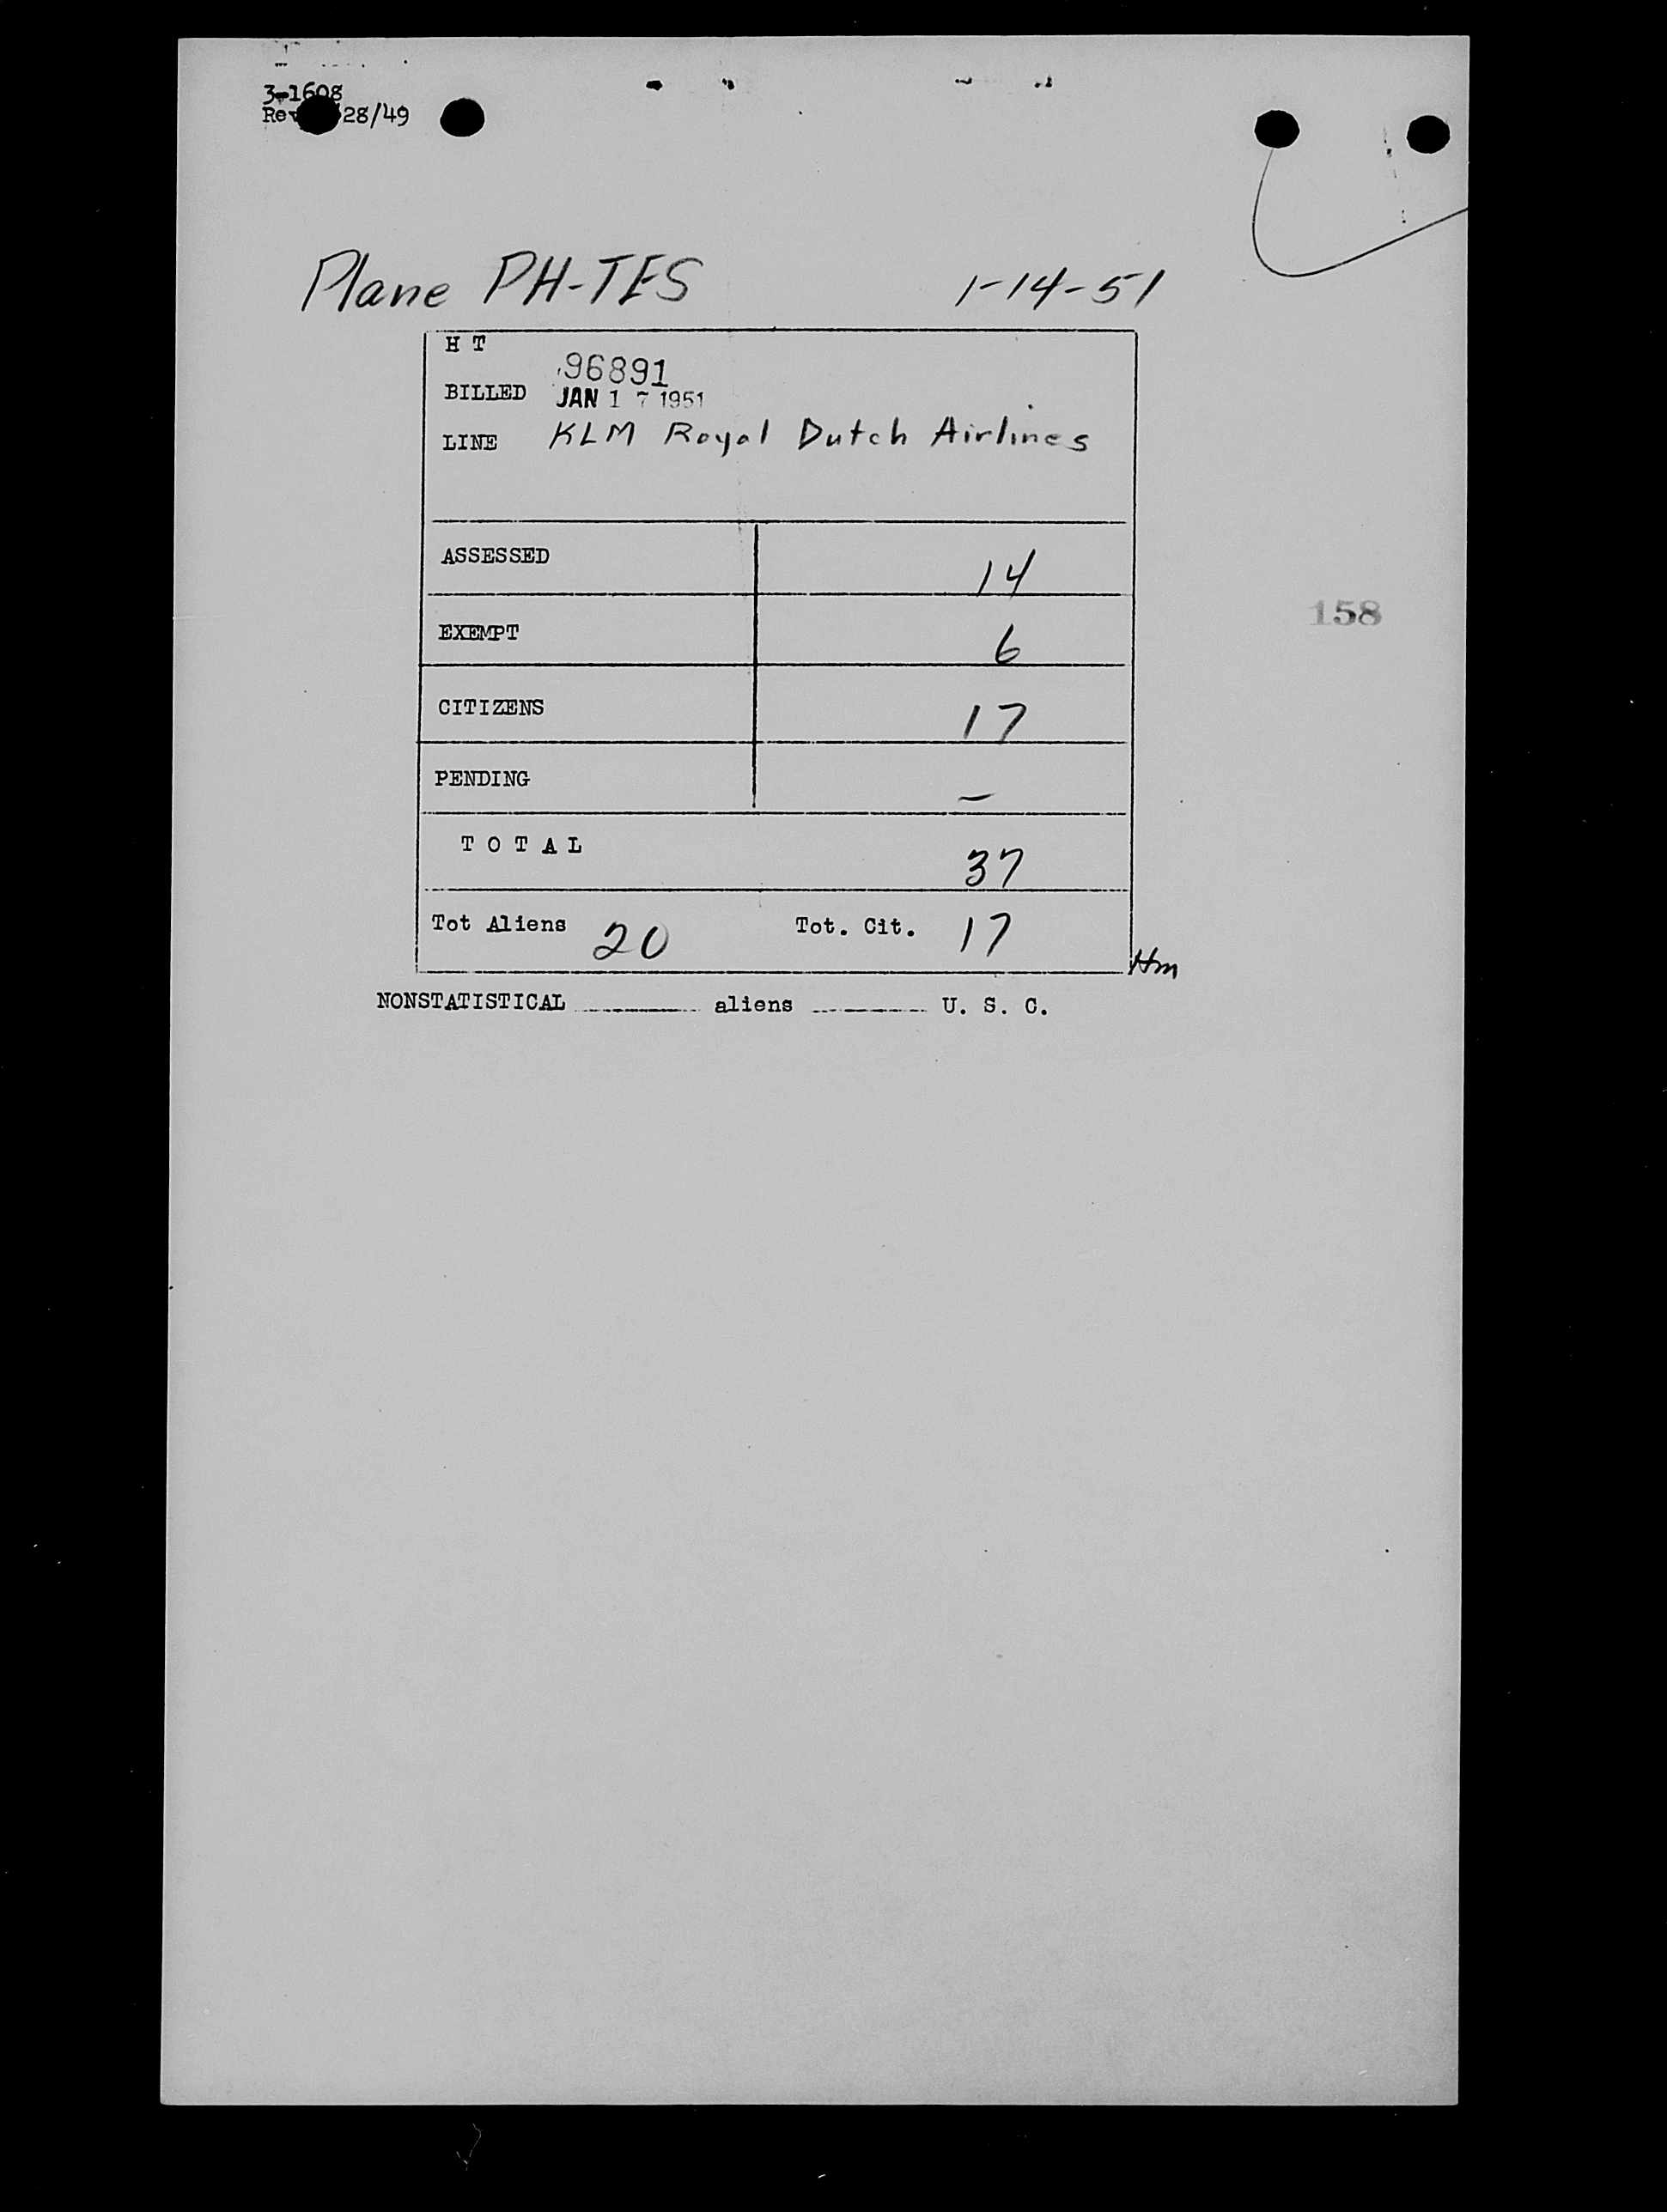 3-1608
Rev 28/49
Plane PH-TES 1-14-51
H T 96891
BILLED JAN 17 1951
LINE KLM Royal Dutch Airlines
ASSESSED 14
EXEMPT 6
158
CITIZENS 17
PENDING –
TOTAL 37
Tot Aliens 20 Tot. Cit. 17
Hm
NONSTATISTICAL ________ aliens ________ U. S. C.